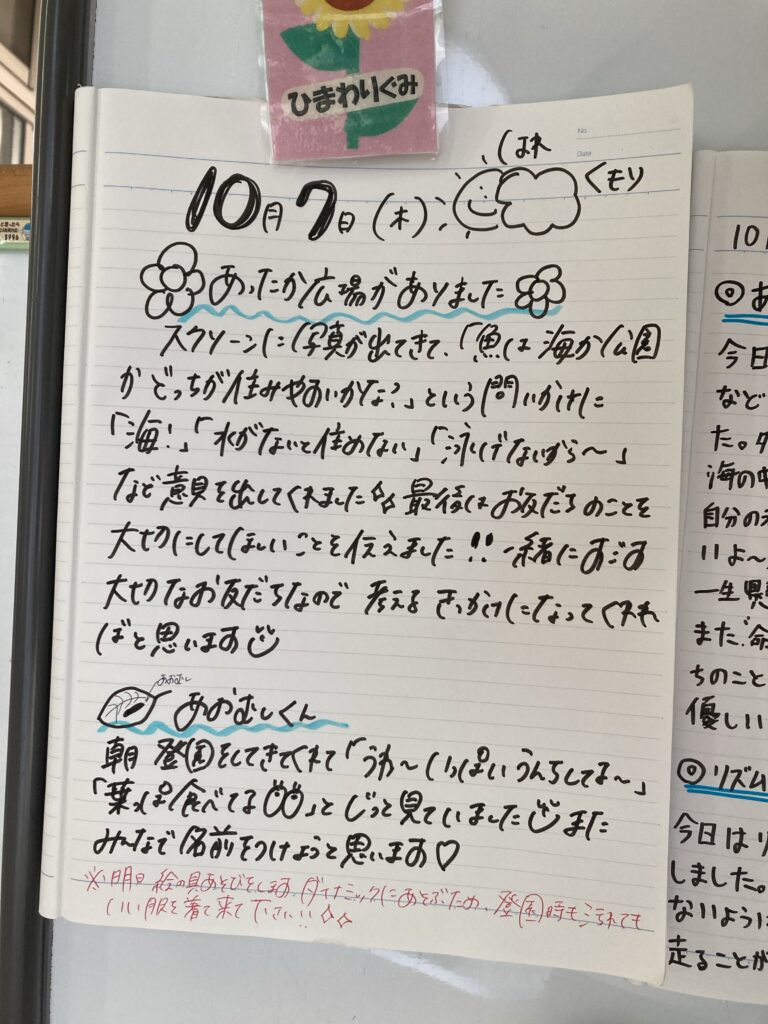 ひまわりぐみ
No.
Date
はれ
くもり
10月7日(木)
あったか広場がありました
スクリーンに写真が出てきて、「魚は海か公園
かどっちが住みやすいかな?」という問いかけに
「海!」「水がないと住めない」「泳げないから〜」
など意見を出してくれました 最後はお友だちのことを
大切にしてほしいことを伝えました!!一緒にすごす
大切なお友だちなので 考える きっかけになってくれれ
ばと思います
あおむし
あおむしくん
朝 登園をしてきてくれて「うわ〜いっぱいうんちしてる〜」
「葉っぱ食べてる」とじっと見ていました また
みんなで名前をつけようと思います♡
※明日 絵の具あそびをします。ダイナミックにあそぶため、登園時も汚れても
いい服を着て来て下さい!!
10
◎あ
今日
など
た。
海の中
自分の
いよ〜
一生懸
また、命
ちのこと
優しい
◎リズム
今日はリ
しました。
ないように
走ることが